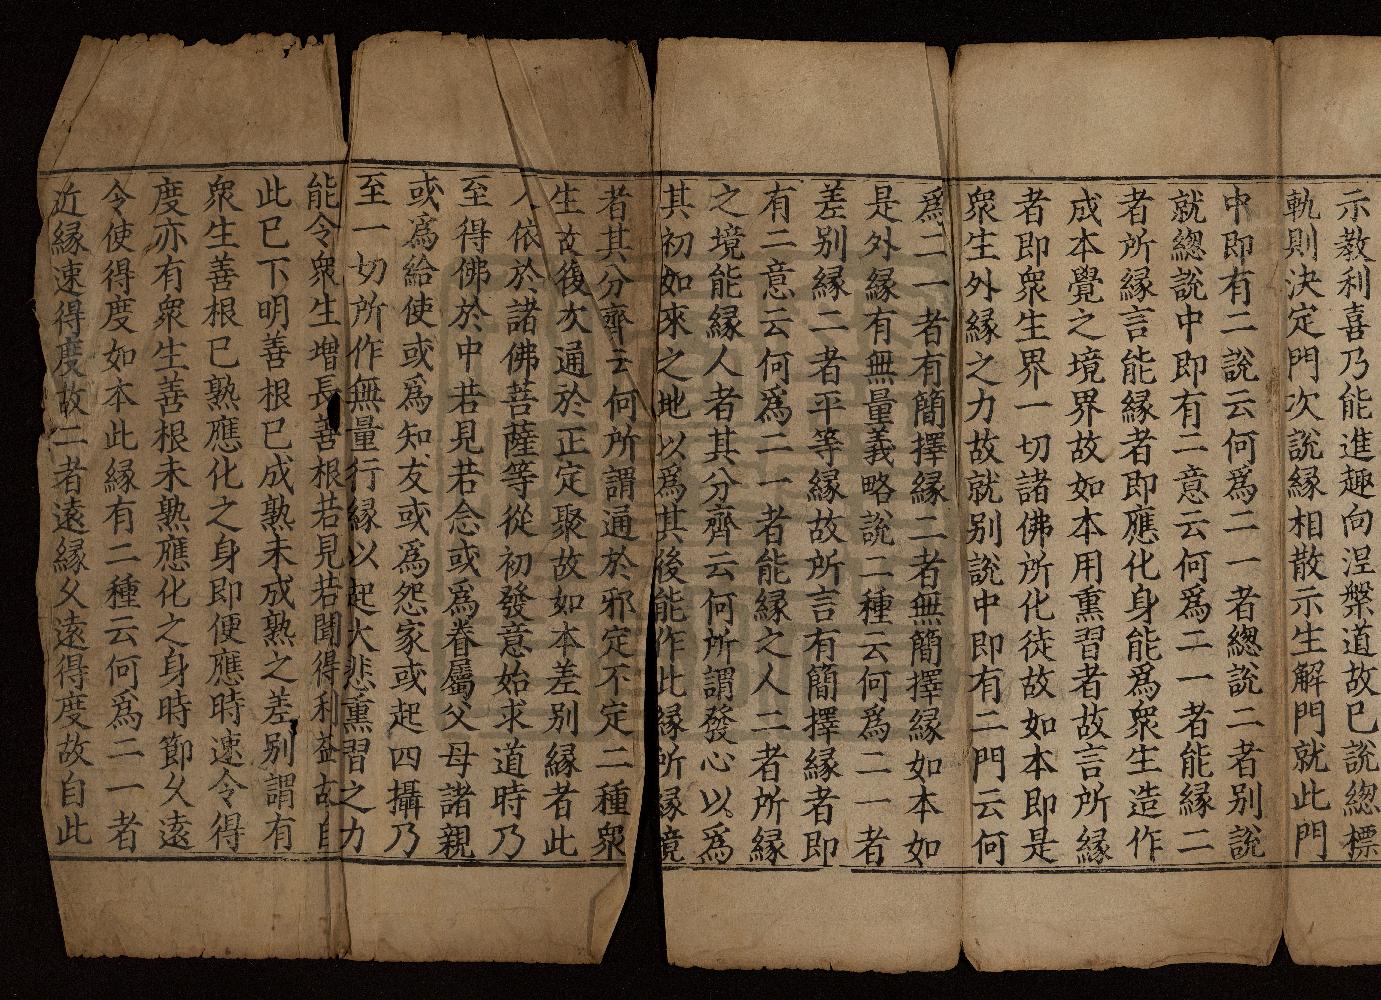 示教利喜乃能進趣向涅槃道故已說總標
軌則決定門次說縁相散示生解門就此門
中即有二說云何爲二一者總說二者別說
就總說中即有二意云何爲二一者能縁二
者所縁言能縁者即應化身能爲衆生造作
成本覺之境界故如本用熏習者故言所縁
者即衆生界一切諸佛所化徒故如本即是
衆生外縁之力故就別說中即有二門云何
爲二一者有簡擇縁二者無簡擇縁如本如
是外縁有無量義略說二種云何爲二一者
差別縁二者平等縁故所言有簡擇縁者即
有二意云何爲二一者能縁之人二者所縁
之境能縁人者其分齊云何所謂發心以爲
其初如來之地以爲其後能作此縁所縁境
者其分齊云何所謂通於邪定不定二種衆
生故復次通於正定聚故如本差別縁者此
人依於諸佛菩薩等從初發意始求道時乃
至得佛於中若見若念或爲眷屬父母諸親
或爲給使或爲知友或爲怨家或起四攝乃
至一切所作無量行縁以起大悲熏習之力
能令衆生增長善根若見若聞得利益故自
此已下明善根已成熟未成熟之差別謂有
衆生善根已熟應化之身即便應時速令得
度亦有衆生善根未熟應化之身時節久遠
令使得度如本此縁有二種云何爲二一者
近縁速得度故二者遠縁久遠得度故自此